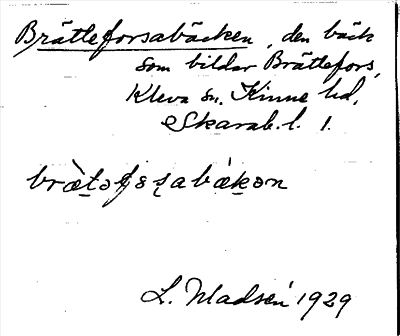 Brätteforsabäcken, den bäck
som bildar Brättefors,
Kleva sn, Kinne hd,
Skarab. l. 1.
L. Madsén 1929